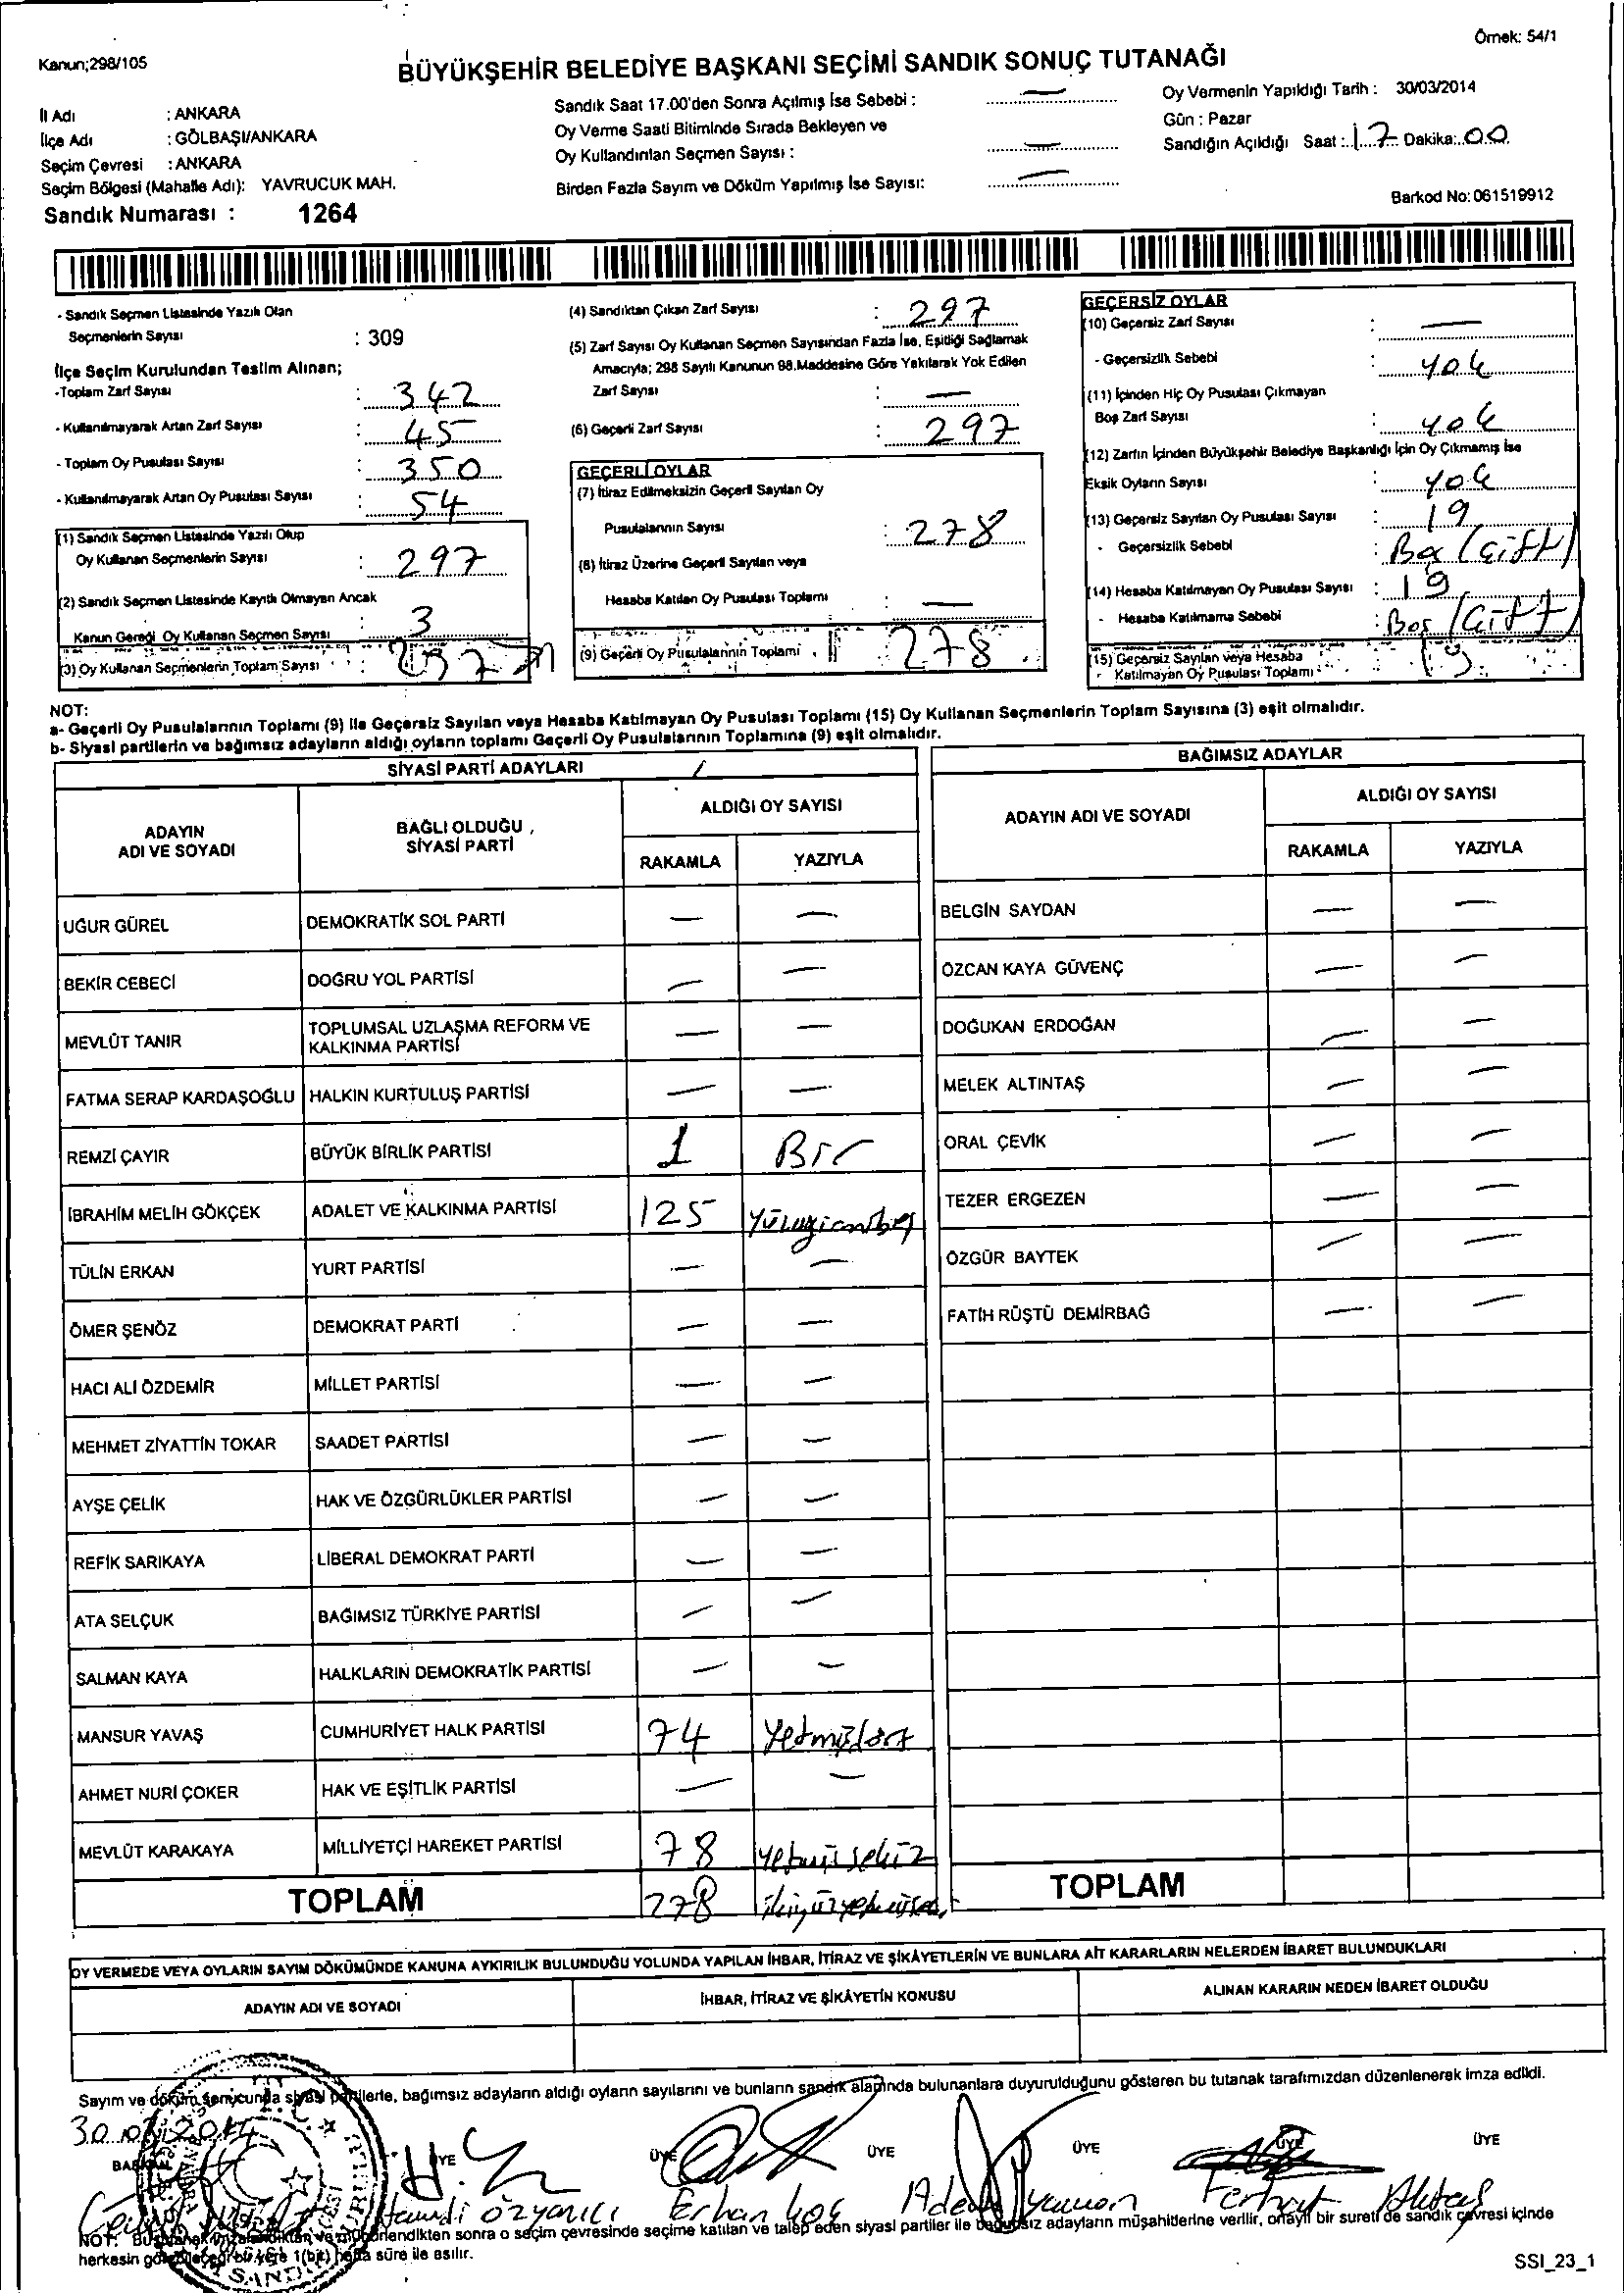 Örnek: 54/1
Kanun;298/105
BÜYÜKŞEHİR BELEDİYE BAŞKANI SEÇİMİ SANDIK SONUÇ TUTANAĞI
İl Adı : ANKARA
İlçe Adı : GÖLBAŞI/ANKARA
Seçim Çevresi : ANKARA
Seçim Bölgesi (Mahalle Adı): YAVRUCUK MAH.
Sandık Numarası : 1264
Sandık Saat 17.00'den Sonra Açılmış İse Sebebi : —
Oy Verme Saati Bitiminde Sırada Bekleyen ve
Oy Kullandırılan Seçmen Sayısı : —
Birden Fazla Sayım ve Döküm Yapılmış İse Sayısı: —
Oy Vermenin Yapıldığı Tarih : 30/03/2014
Gün : Pazar
Sandığın Açıldığı Saat : 17 Dakika: 00
Barkod No: 061519912
- Sandık Seçmen Listesinde Yazılı Olan
Seçmenlerin Sayısı : 309
İlçe Seçim Kurulundan Teslim Alınan;
-Toplam Zarf Sayısı : 342
- Kullanılmayarak Artan Zarf Sayısı : 45
- Toplam Oy Pusulası Sayısı : 350
- Kullanılmayarak Artan Oy Pusulası Sayısı : 54
(1) Sandık Seçmen Listesinde Yazılı Olup
Oy Kullanan Seçmenlerin Sayısı : 297
(2) Sandık Seçmen Listesinde Kayıtlı Olmayan Ancak
Kanun Gereği Oy Kullanan Seçmen Sayısı : 3
(3) Oy Kullanan Seçmenlerin Toplam Sayısı : 297
(4) Sandıktan Çıkan Zarf Sayısı : 297
(5) Zarf Sayısı Oy Kullanan Seçmen Sayısından Fazla İse, Eşitliği Sağlamak
Amacıyla; 298 Sayılı Kanunun 98.Maddesine Göre Yakılarak Yok Edilen
Zarf Sayısı : —
(6) Geçerli Zarf Sayısı : 297
GEÇERLİ OYLAR
(7) İtiraz Edilmeksizin Geçerli Sayılan Oy
Pusulalarının Sayısı : 278
(8) İtiraz Üzerine Geçerli Sayılan veya
Hesaba Katılan Oy Pusulası Toplamı : —
(9) Geçerli Oy Pusulalarının Toplamı : 278
GEÇERSİZ OYLAR
(10) Geçersiz Zarf Sayısı : —
- Geçersizlik Sebebi : yok
(11) İçinden Hiç Oy Pusulası Çıkmayan
Boş Zarf Sayısı : yok
(12) Zarfın İçinden Büyükşehir Belediye Başkanlığı İçin Oy Çıkmamış İse
Eksik Oyların Sayısı : yok
(13) Geçersiz Sayılan Oy Pusulası Sayısı : 19
- Geçersizlik Sebebi : Boş (Çift)
(14) Hesaba Katılmayan Oy Pusulası Sayısı : 19
- Hesaba Katılmama Sebebi : Boş (Çift)
(15) Geçersiz Sayılan veya Hesaba
Katılmayan Oy Pusulası Toplamı : 19
NOT:
a- Geçerli Oy Pusulalarının Toplamı (9) ile Geçersiz Sayılan veya Hesaba Katılmayan Oy Pusulası Toplamı (15) Oy Kullanan Seçmenlerin Toplam Sayısına (3) eşit olmalıdır.
b- Siyasi partilerin ve bağımsız adayların aldığı oyların toplamı Geçerli Oy Pusulalarının Toplamına (9) eşit olmalıdır.
SİYASİ PARTİ ADAYLARI
ADAYIN ADI VE SOYADI BAĞLI OLDUĞU SİYASİ PARTİ ALDIĞI OY SAYISI
RAKAMLA YAZIYLA
UĞUR GÜREL DEMOKRATİK SOL PARTİ — —
BEKİR CEBECİ DOĞRU YOL PARTİSİ — —
MEVLÜT TANIR TOPLUMSAL UZLAŞMA REFORM VE KALKINMA PARTİSİ — —
FATMA SERAP KARDAŞOĞLU HALKIN KURTULUŞ PARTİSİ — —
REMZİ ÇAYIR BÜYÜK BİRLİK PARTİSİ 1 Bir
İBRAHİM MELİH GÖKÇEK ADALET VE KALKINMA PARTİSİ 125 Yüzyirmibeş
TÜLİN ERKAN YURT PARTİSİ — —
ÖMER ŞENÖZ DEMOKRAT PARTİ — —
HACI ALİ ÖZDEMİR MİLLET PARTİSİ — —
MEHMET ZİYATTİN TOKAR SAADET PARTİSİ — —
AYŞE ÇELİK HAK VE ÖZGÜRLÜKLER PARTİSİ — —
REFİK SARIKAYA LİBERAL DEMOKRAT PARTİ — —
ATA SELÇUK BAĞIMSIZ TÜRKİYE PARTİSİ — —
SALMAN KAYA HALKLARIN DEMOKRATİK PARTİSİ — —
MANSUR YAVAŞ CUMHURİYET HALK PARTİSİ 74 Yetmişdört
AHMET NURİ ÇOKER HAK VE EŞİTLİK PARTİSİ — —
MEVLÜT KARAKAYA MİLLİYETÇİ HAREKET PARTİSİ 78 yetmişsekiz
TOPLAM 278
BAĞIMSIZ ADAYLAR
ADAYIN ADI VE SOYADI ALDIĞI OY SAYISI
RAKAMLA YAZIYLA
BELGİN SAYDAN — —
ÖZCAN KAYA GÜVENÇ — —
DOĞUKAN ERDOĞAN — —
MELEK ALTINTAŞ — —
ORAL ÇEVİK — —
TEZER ERGEZEN — —
ÖZGÜR BAYTEK — —
FATİH RÜŞTÜ DEMİRBAĞ — —
TOPLAM
OY VERMEDE VEYA OYLARIN SAYIM DÖKÜMÜNDE KANUNA AYKIRILIK BULUNDUĞU YOLUNDA YAPILAN İHBAR, İTİRAZ VE ŞİKÂYETLERİN VE BUNLARA AİT KARARLARIN NELERDEN İBARET BULUNDUKLARI
ADAYIN ADI VE SOYADI İHBAR, İTİRAZ VE ŞİKÂYETİN KONUSU ALINAN KARARIN NEDEN İBARET OLDUĞU
Sayım ve döküm sonucunda siyasi partilerle, bağımsız adayların aldığı oyların sayılarını ve bunların sandık alanında bulunanlara duyurulduğunu gösteren bu tutanak tarafımızdan düzenlenerek imza edildi.
30.03.2014
BAŞKAN ÜYE ÜYE ÜYE ÜYE ÜYE ÜYE
Hamdi Özyanıcı Erhan Koç Adem Yaman Ferhat Aktaş
NOT: Bu tutanak imzalandıktan ve mühürlendikten sonra o seçim çevresinde seçime katılan ve talep eden siyasi partiler ile bağımsız adayların müşahitlerine verilir, onaylı bir sureti de sandık çevresi içinde
herkesin görebileceği bir yere 1(bir) hafta süre ile asılır.
SSI_23_1